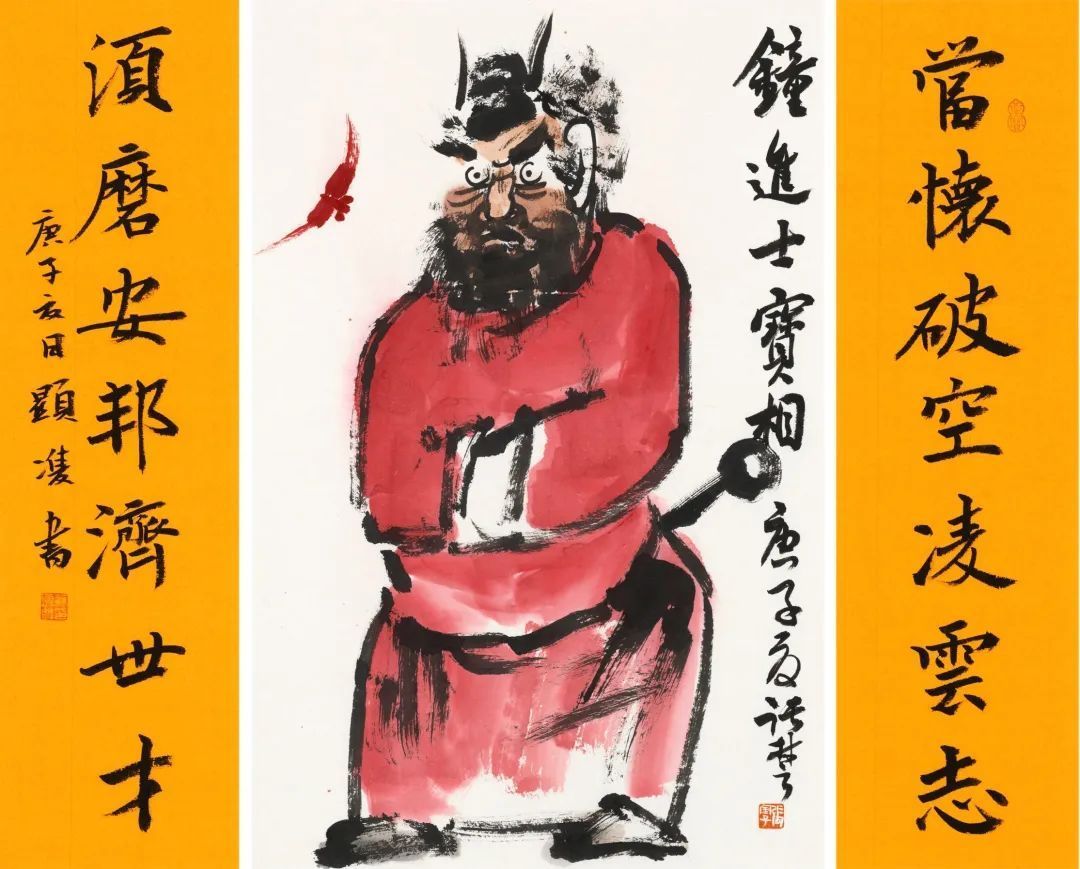 當懷破空凌雲志
鐘進士寶相 庚子夏
湏磨安邦濟世才
庚子夏日顯書